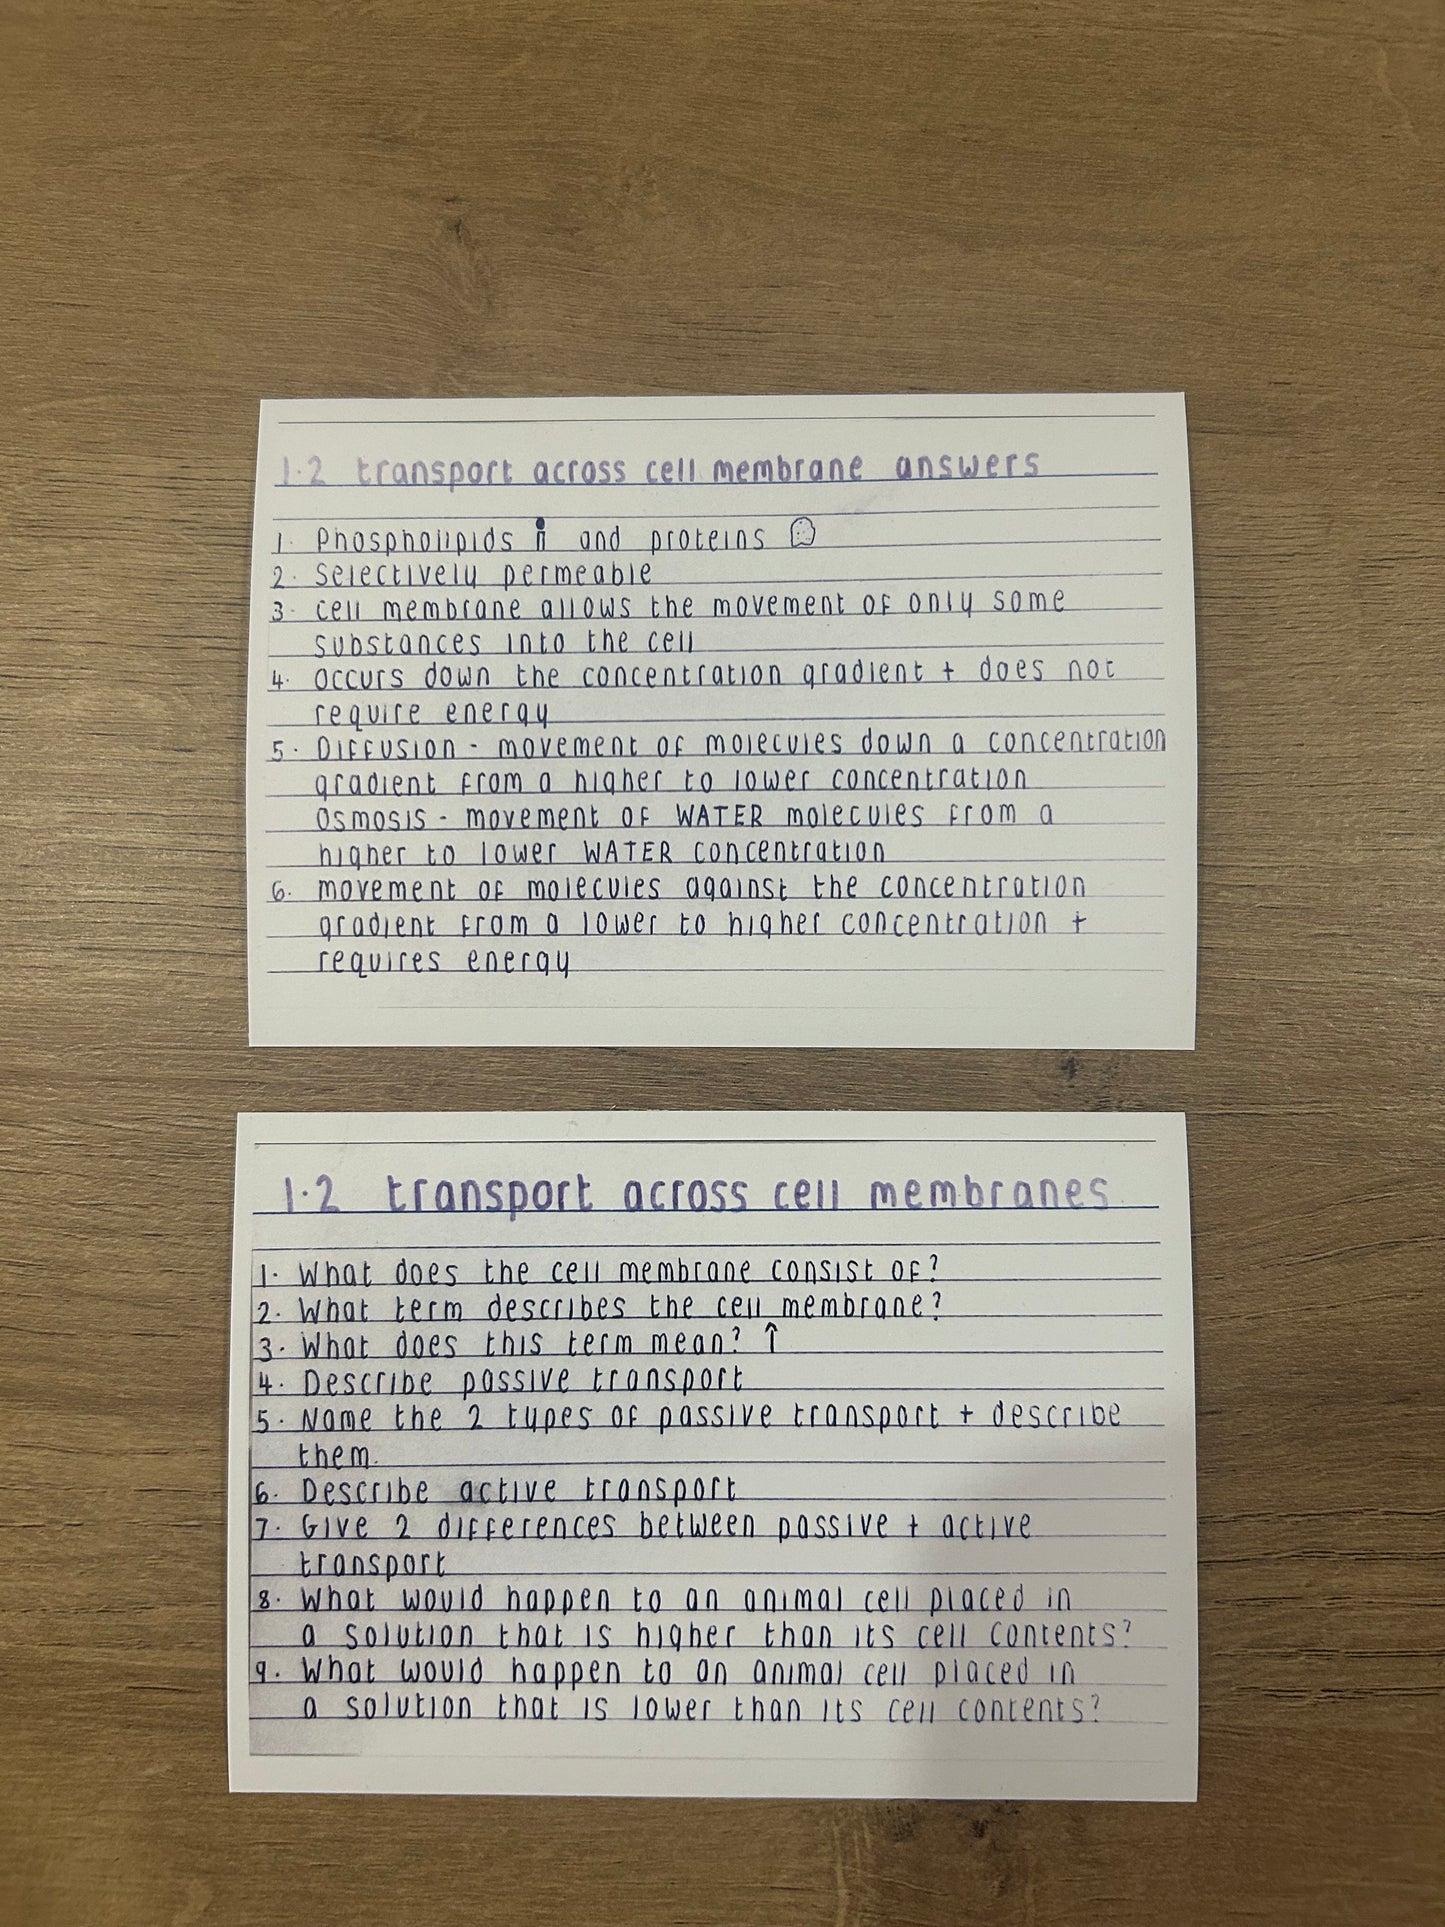 1.2 transport across cell membrane answers
1. Phospholipids and proteins
2. Selectively permeable
3. cell membrane allows the movement of only some
substances into the cell
4. occurs down the concentration gradient + does not
require energy
5. Diffusion - movement of molecules down a concentration
gradient from a higher to lower concentration
Osmosis - movement of WATER molecules from a
higher to lower WATER concentration
6. movement of molecules against the concentration
gradient from a lower to higher concentration +
requires energy
1.2 transport across cell membranes
1. What does the cell membrane consist of?
2. What term describes the cell membrane?
3. What does this term mean? ↑
4. Describe passive transport
5. Name the 2 types of passive transport + describe
them.
6. Describe active transport
7. Give 2 differences between passive + active
transport
8. What would happen to an animal cell placed in
a solution that is higher than its cell contents?
9. What would happen to an animal cell placed in
a solution that is lower than its cell contents?